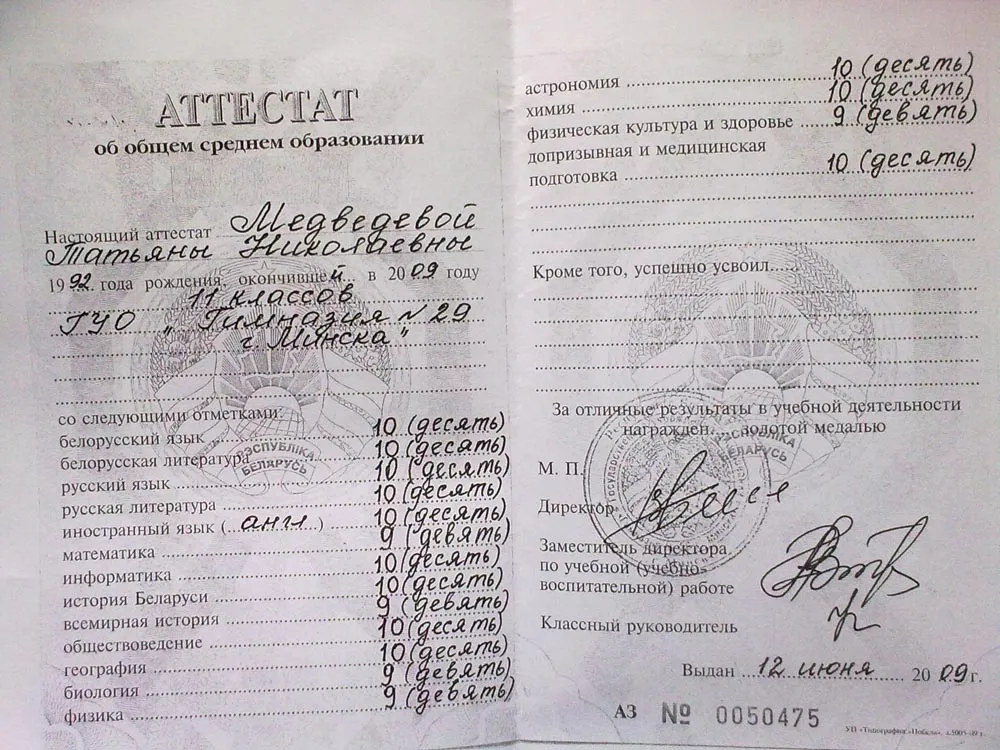 АТТЕСТАТ
об общем среднем образовании
Настоящий аттестат Медведевой
Татьяны Николаевны
1992. года рождения, окончившей в 2009 году
11 классов
ГУО „Гимназия № 29
г. Минска"
со следующими отметками:
белорусский язык 10 (десять)
белорусская литература 10 (десять)
русский язык 10 (десять)
русская литература 10 (десять)
иностранный язык (англ) 10 (десять)
математика 9 (девять)
информатика 10 (десять)
история Беларуси 10 (десять)
всемирная история 9 (девять)
обществоведение 10 (десять)
география 10 (десять)
биология 9 (девять)
физика 9 (девять)
РЭСПУБЛІКА
БЕЛАРУСЬ
астрономия 10 (десять)
химия 10 (десять)
физическая культура и здоровье 9 (девять)
допризывная и медицинская
подготовка 10 (десять)
Кроме того, успешно усвоил
За отличные результаты в учебной деятельности
награжден золотой медалью
РЭСПУБЛІКА
БЕЛАРУСЬ
М. П.
Директор
Заместитель директора
по учебной (учебно-
воспитательной) работе
Классный руководитель
Выдан 12 июня 2009г.
АЗ № 0050475